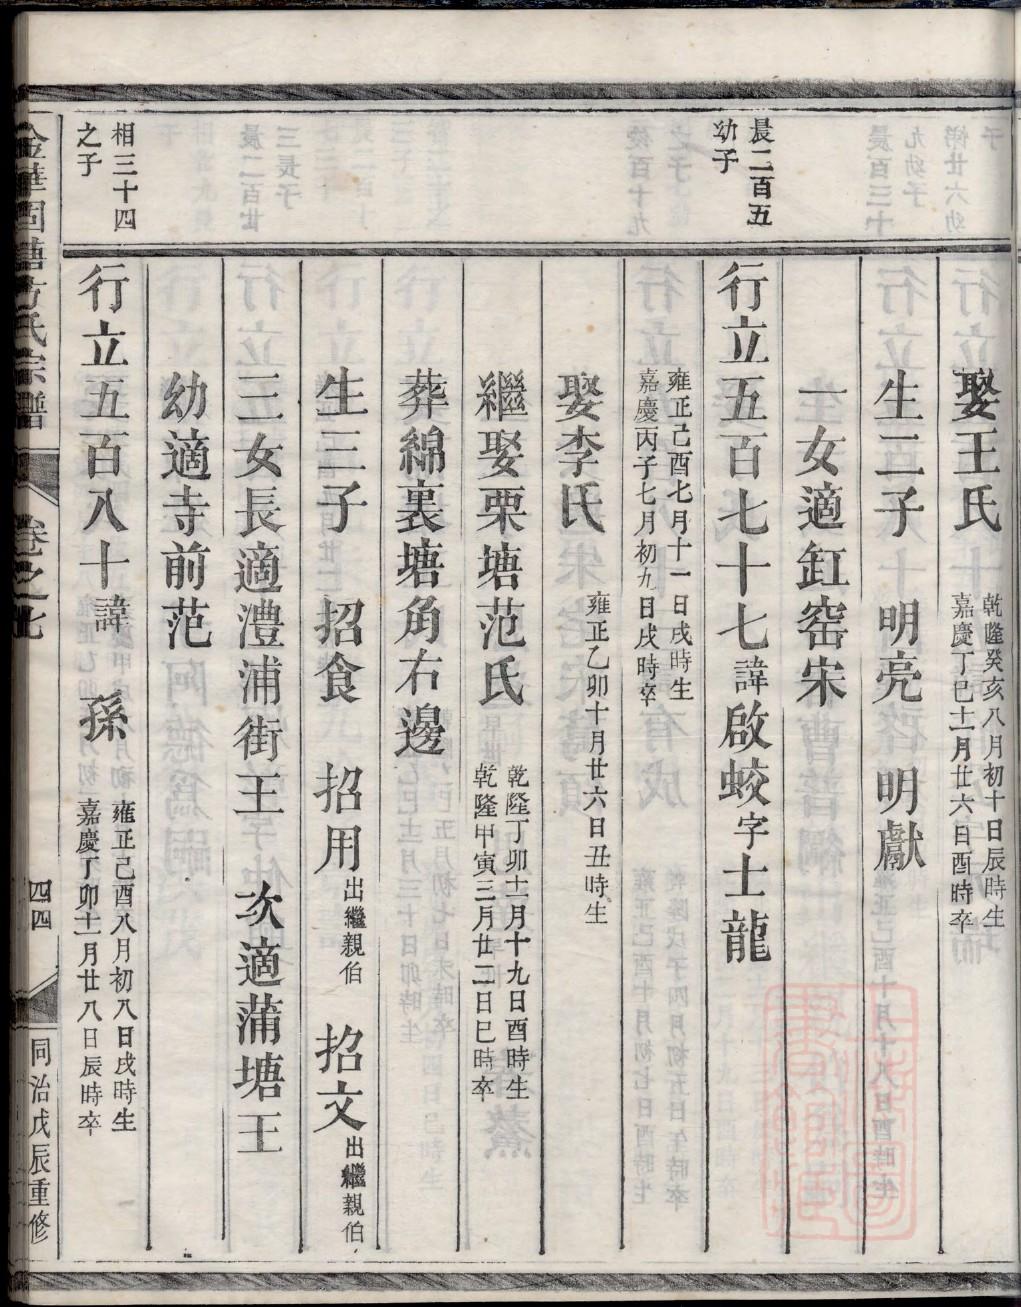 娶王氏 乾隆癸亥八月初十日辰時生 嘉慶丁巳十一月廿六日酉時卒
生二子 明亮 明獻
一女適缸窑宋
晨二百五幼子
行立五百七十七諱啟蛟字士龍
雍正己酉七月十一日戌時生 嘉慶丙子七月初九日戌時卒
娶李氏 雍正乙卯十月廿六日丑時生
繼娶栗塘范氏 乾隆丁卯十一月十九日酉時生 乾隆甲寅三月廿二日巳時卒
葬綿裏塘角右邊
生三子 招食 招用出繼親伯 招文出繼親伯
三女長適澧浦街王 次適蒲塘王
幼適寺前范
相三十四之子
行立五百八十諱 孫 雍正己酉八月初八日戌時生 嘉慶丁卯十一月廿八日辰時卒
金華 方氏宗譜 卷之七 四四 同治戊辰重修